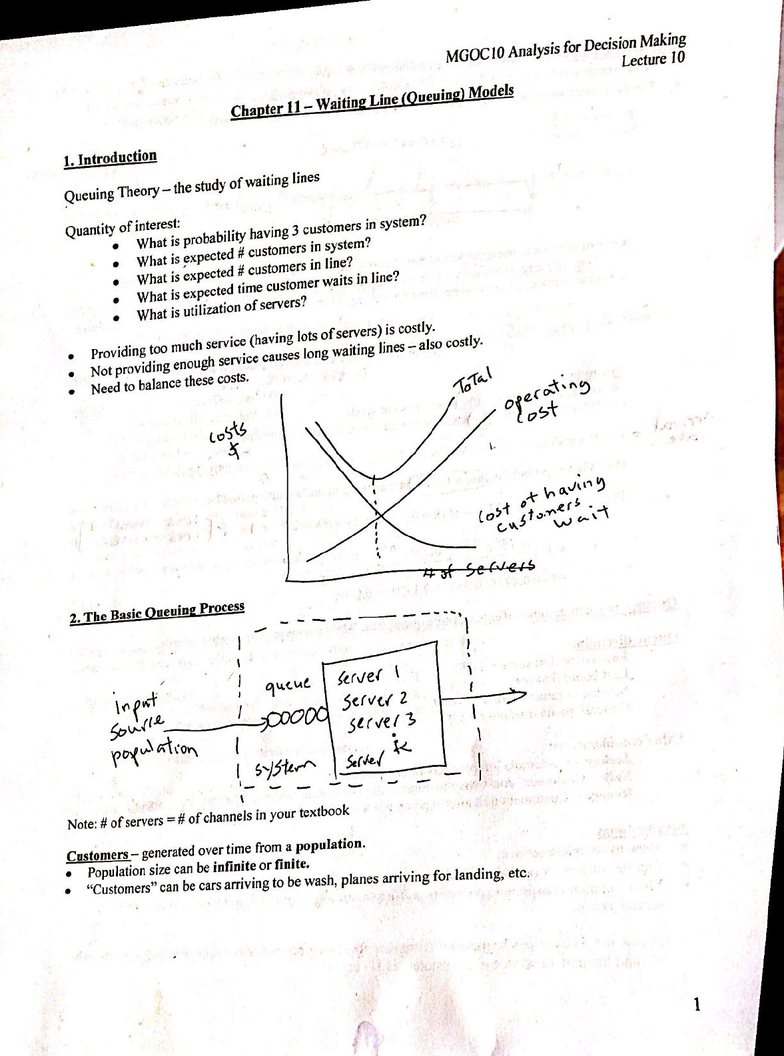 MGOC10 Analysis for Decision Making
Lecture 10
Chapter 11 – Waiting Line (Queuing) Models
1. Introduction
Queuing Theory – the study of waiting lines
Quantity of interest:
• What is probability having 3 customers in system?
• What is expected # customers in system?
• What is expected # customers in line?
• What is expected time customer waits in line?
• What is utilization of servers?
• Providing too much service (having lots of servers) is costly.
• Not providing enough service causes long waiting lines – also costly.
• Need to balance these costs.
Total
operating
cost
costs
$
cost of having
customers
wait
# of servers
2. The Basic Queuing Process
input
source
population
queue
system
server 1
server 2
server 3
server k
Note: # of servers = # of channels in your textbook
Customers – generated over time from a population.
• Population size can be infinite or finite.
• “Customers” can be cars arriving to be wash, planes arriving for landing, etc.
1